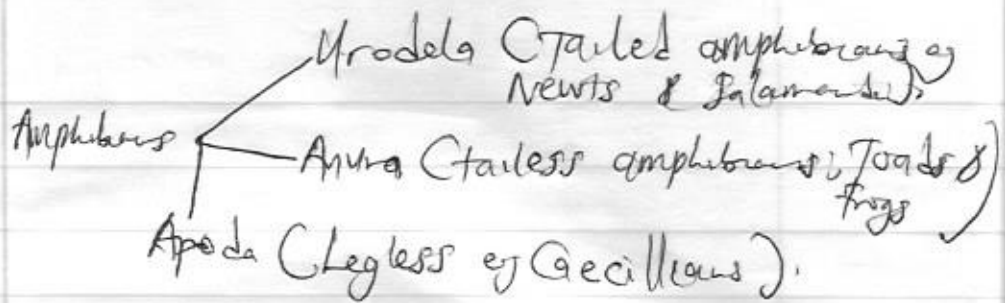 Urodela (Tailed amphibians eg
Newts & Salamanders).
Amphibians
Anura (tailess amphibians; Toads &
frogs)
Apoda (Legless eg Caecillians).